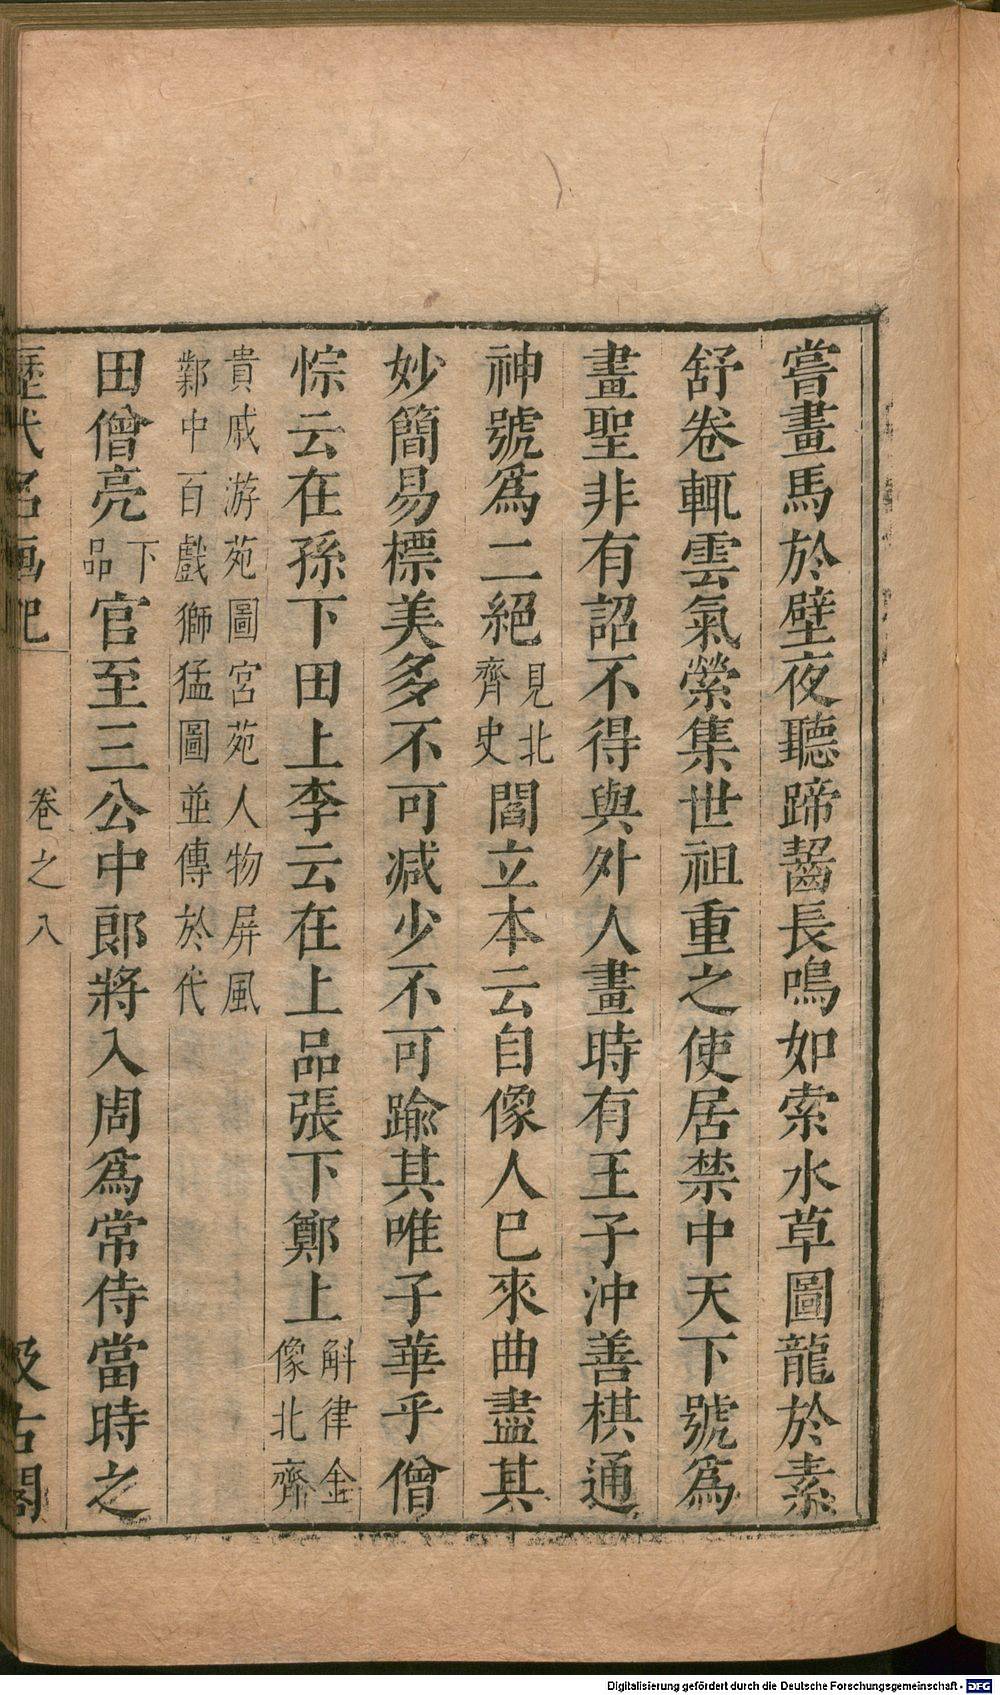 嘗畫馬於壁夜聽蹄齧長鳴如索水草圖龍於素
舒卷輒雲氣縈集世祖重之使居禁中天下號爲
畫聖非有詔不得與外人畫時有王子沖善棋通
神號爲二絕見北齊史閻立本云自像人巳來曲盡其
妙簡易標美多不可減少不可踰其唯子華乎僧
悰云在孫下田上李云在上品張下鄭上斛律金像北齊
貴戚游苑圖宮苑人物屏風
鄴中百戲獅猛圖並傳於代
田僧亮下品官至三公中郎將入周爲常侍當時之
歷代名畫記 卷之八 汲古閣
Digitalisierung gefördert durch die Deutsche Forschungsgemeinschaft - DFG